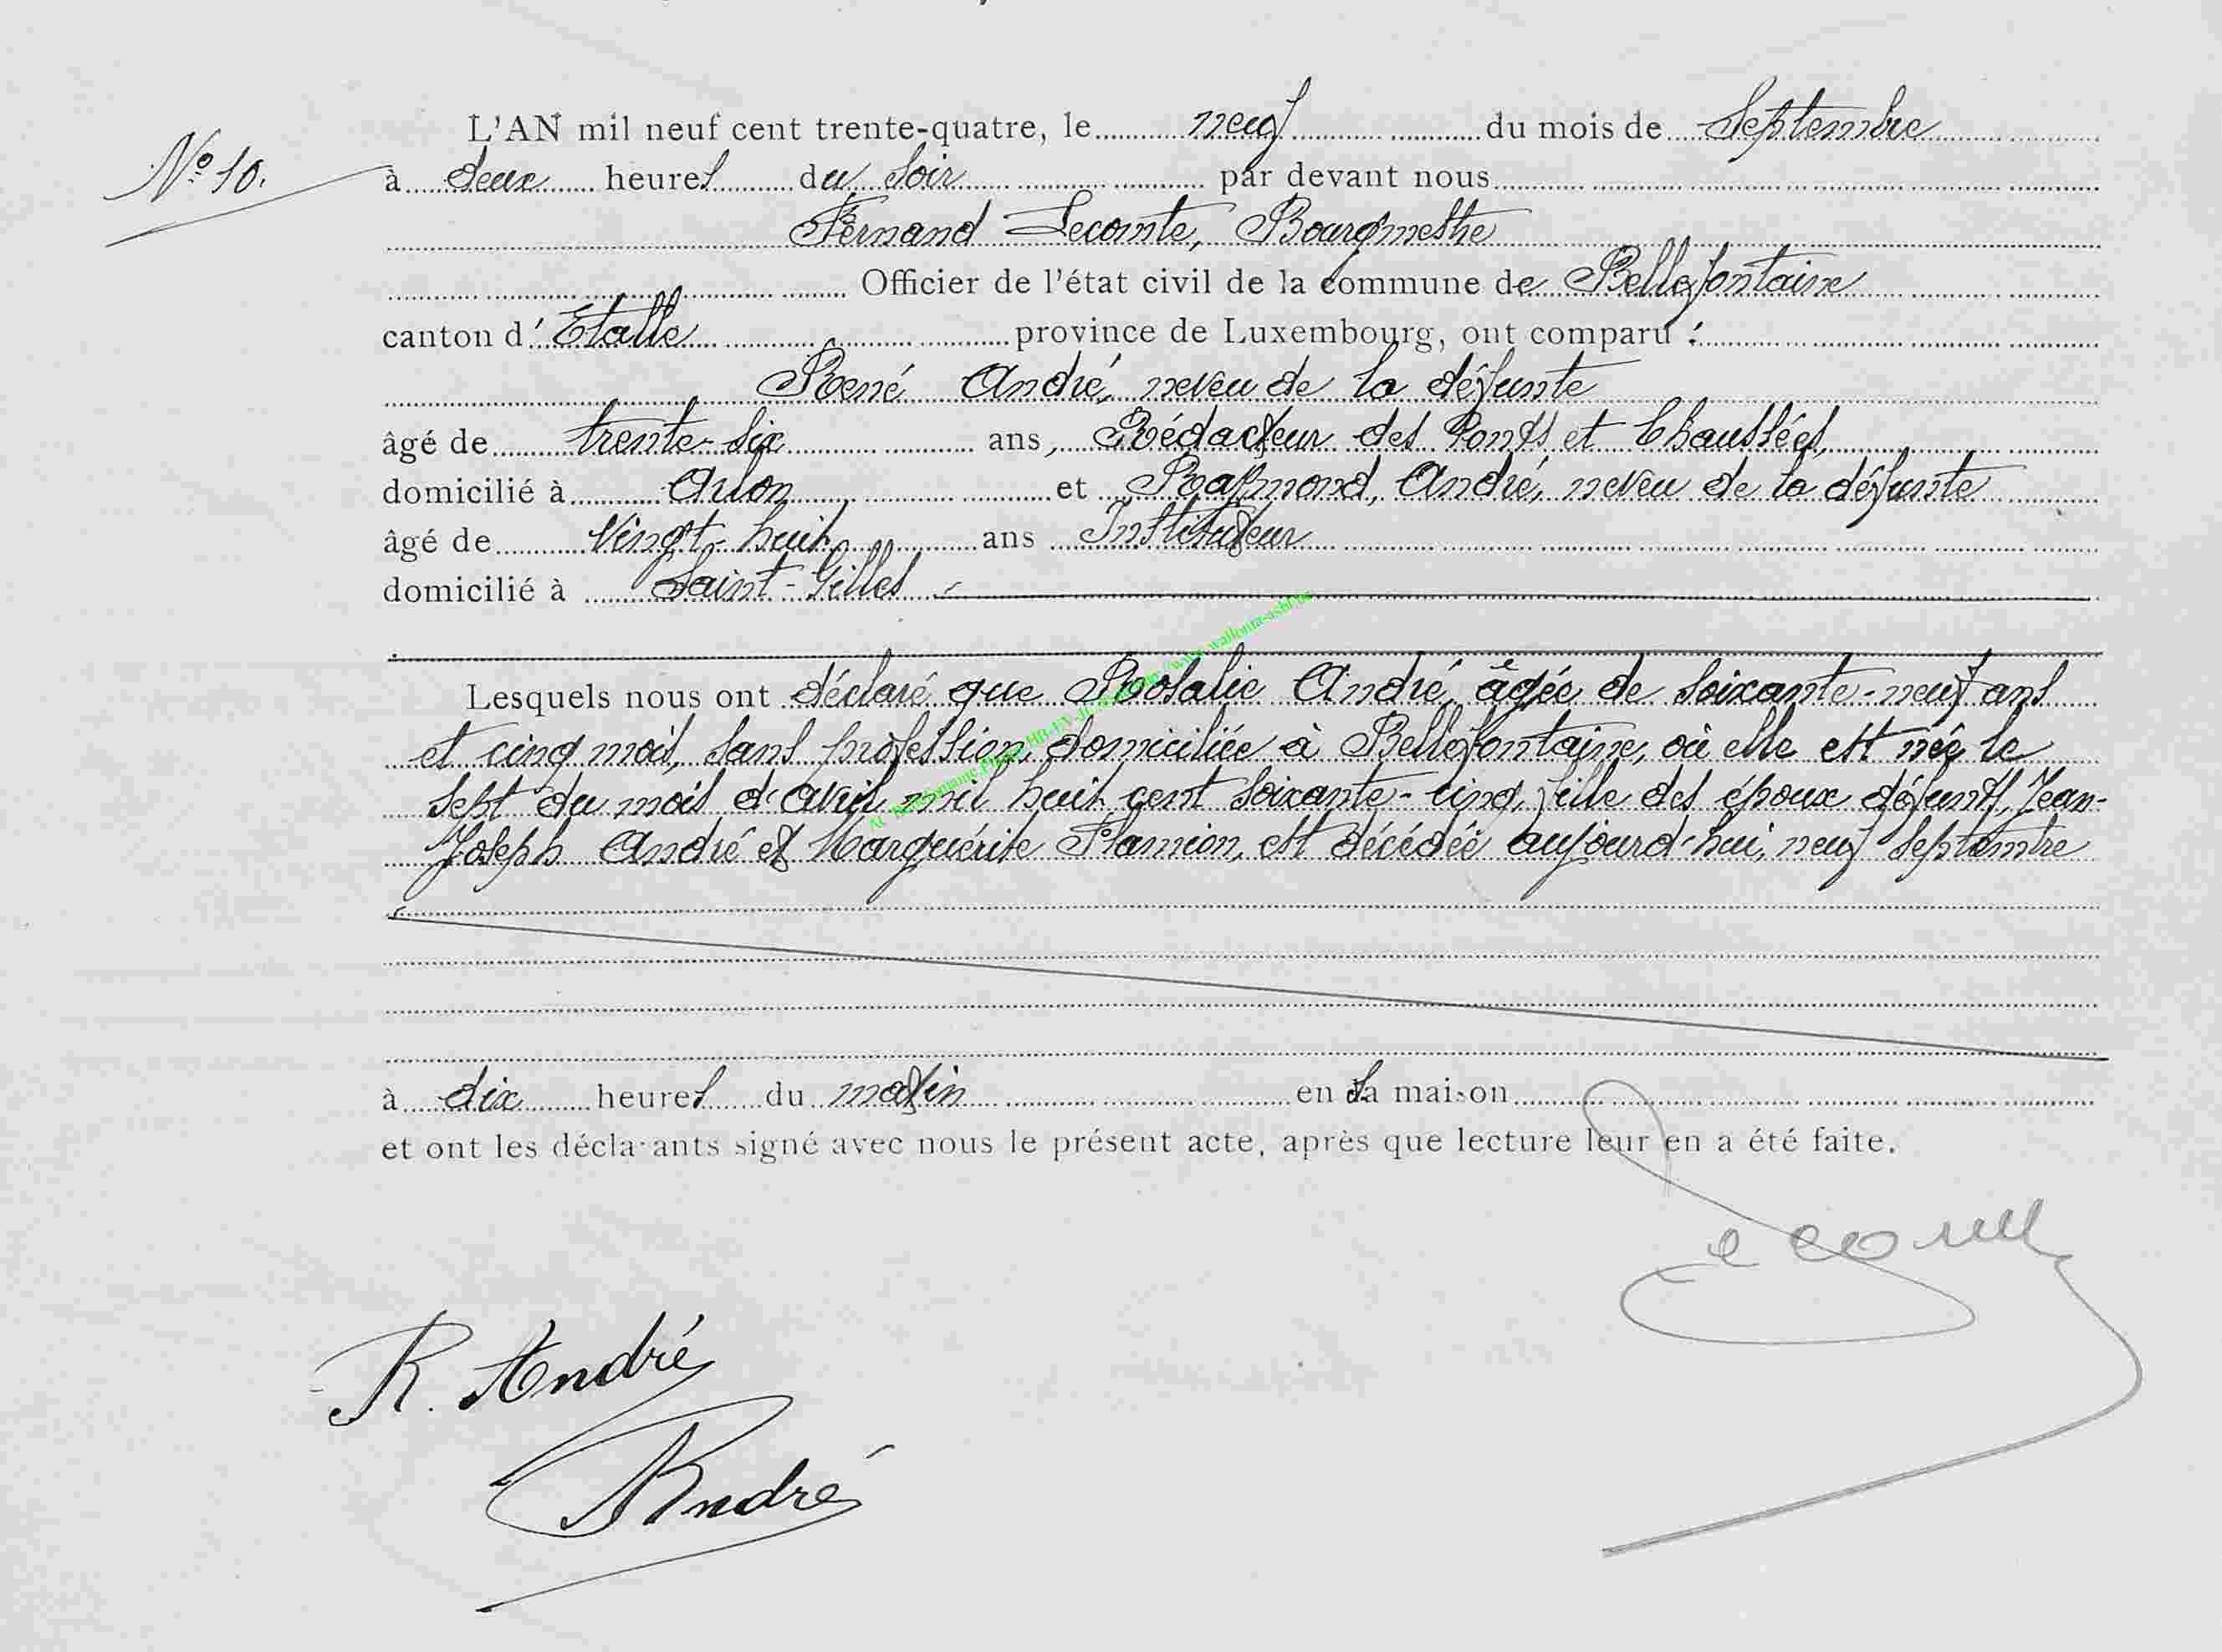 L'AN mil neuf cent trente-quatre, le neuf du mois de Septembre
N° 10. à deux heures du soir par devant nous
Fernand Lecomte, Bourgmestre
Officier de l'état civil de la commune de Bellefontaine
canton d'Etalle province de Luxembourg, ont comparu :
René André, neveu de la défunte
âgé de trente-six ans, Rédacteur des Ponts et Chaussées,
domicilié à Arlon et Raymond, André, neveu de la défunte
âgé de vingt-huit ans Instituteur
domicilié à Saint-Gilles
Lesquels nous ont déclaré que Rosalie André, âgée de soixante-neuf ans
et cinq mois, sans profession, domiciliée à Bellefontaine, où elle est née le
sept du mois d'avril mil huit cent soixante-cinq, fille des époux défunts, Jean-
Joseph André et Marguérite Flamion, est décédée aujourd'hui, neuf Septembre
à dix heures du matin en sa maison
et ont les déclarants signé avec nous le présent acte, après que lecture leur en a été faite.
Lecomte
R. André
R André